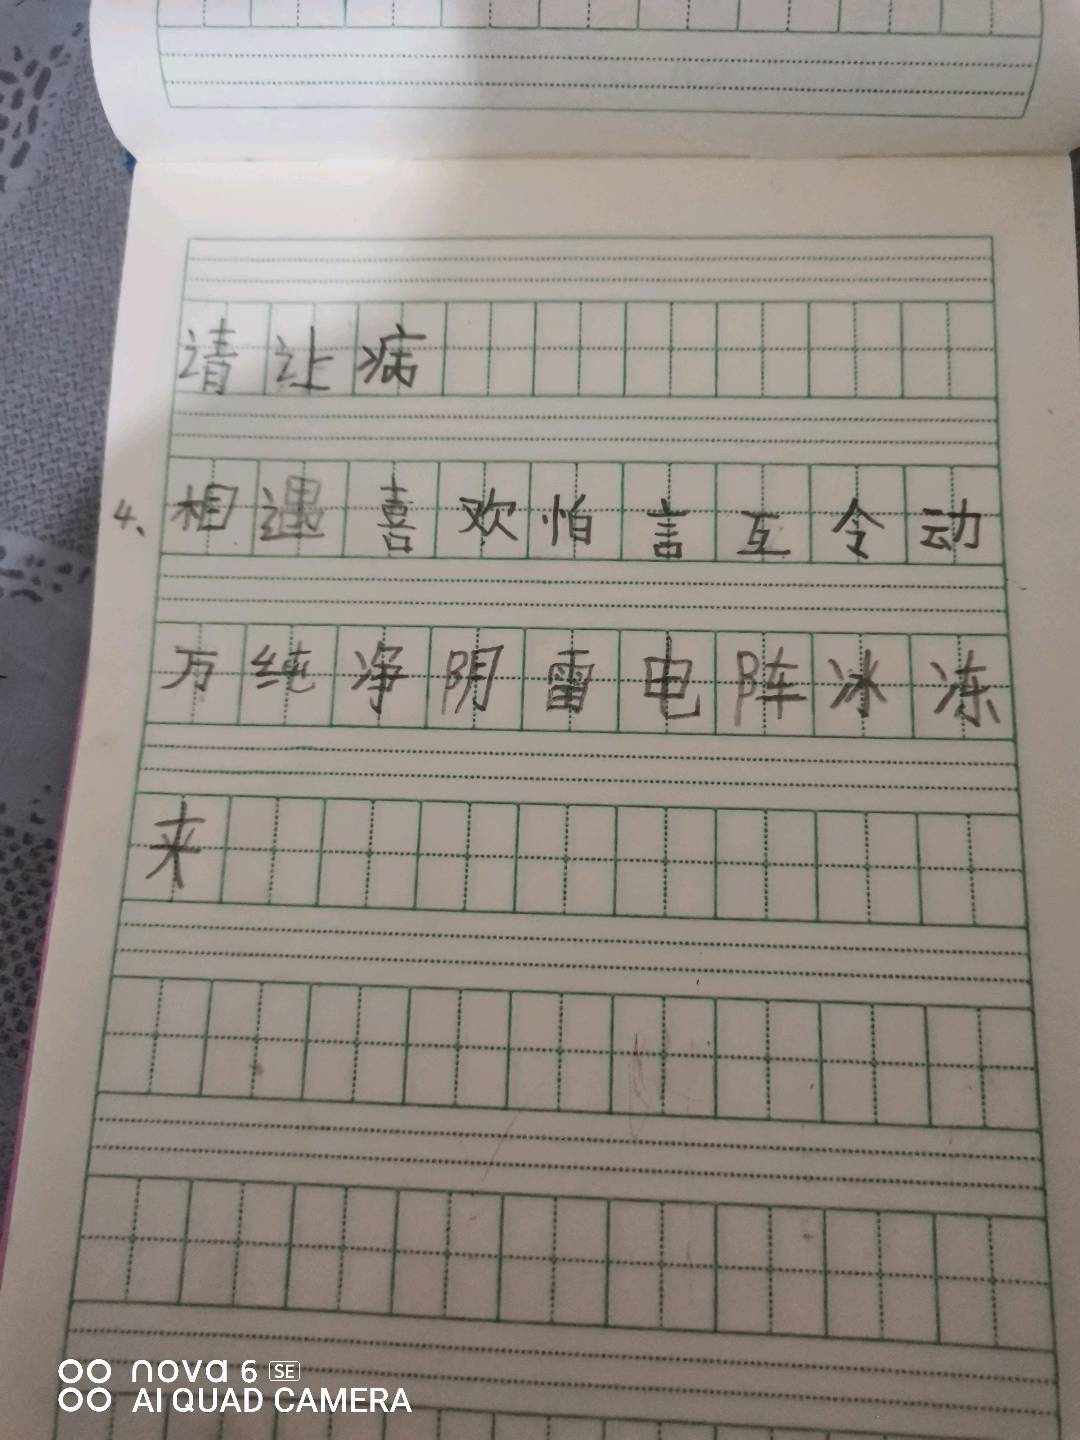 请让病
4、相遇喜欢怕言互令动
万纯净阴雷电阵冰冻
来
nova 6 SE
AI QUAD CAMERA